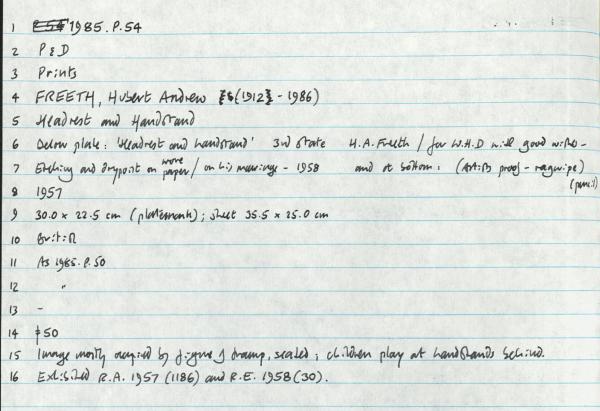 1 R 54 1985.P.54
2 P & D
3 Prints
4 FREETH, Hubert Andrew (1912 - 1986)
5 Headrest and Handstand
6 Below plate: 'Headrest and handstand' 3rd State H.A. Freeth / for W.H.D with good wishes -
7 Etching and drypoint on wove paper / on his marriage - 1958 and at bottom: (Artist's proof - ragwipe) (pencil)
8 1957
9 30.0 x 22.5 cm (platemark); sheet 35.5 x 25.0 cm
10 British
11 As 1985.P.50
12 "
13 -
14 50
15 Image mostly occupied by figure of tramp, seated; children play at handstands behind.
16 Exhibited R.A. 1957 (1186) and R.E. 1958 (30).